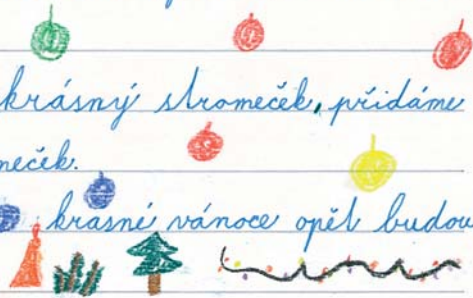 krásný stromeček, přidáme
meček.
krasné vánoce opět budou